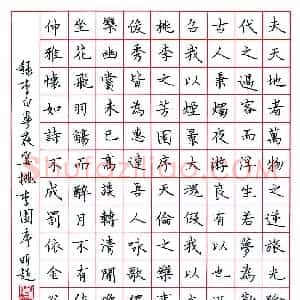 夫天地者萬物之逆旅光
代之過客而浮生若夢為
古人秉燭夜遊良有以也況
召我以煙景大塊假我以
桃李之芳園序天倫之樂
俊秀皆為惠連吾人詠歌
樂幽賞未已高談轉清開
坐花飛羽觴而醉月不有
仲雅懷如詩不成罰依金
錄李白春夜宴桃李園序
Shufaziliao.com